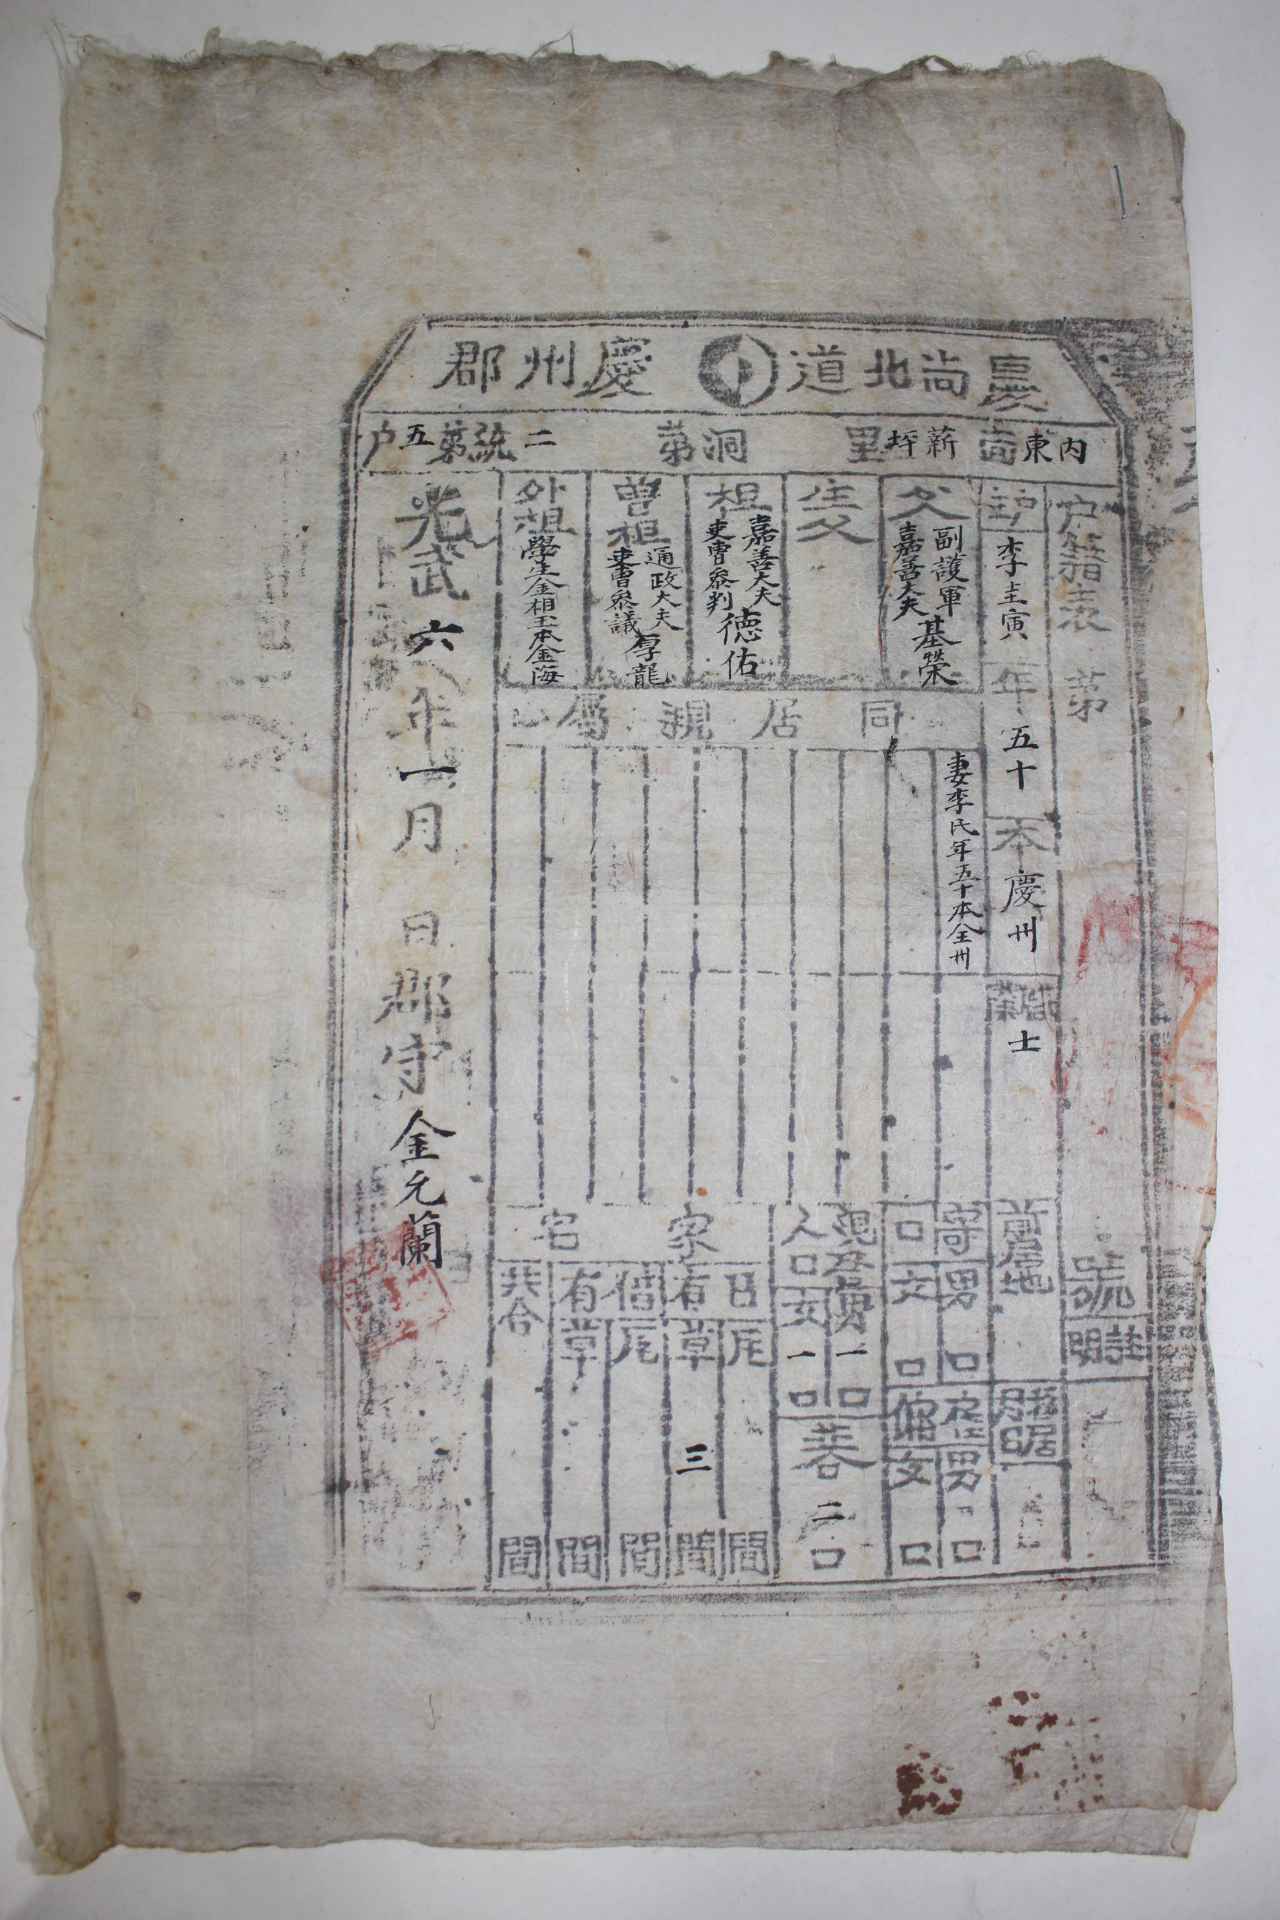 慶尚北道 慶州郡
內東面 薪坪里 洞 第 二 統 第 五 戶
戶籍表 第 號
註明
主戶 李圭寅 年 五十 本 慶州 職業 士 前居地 移居 月日
父 副護軍
嘉善大夫 基榮
生父
祖 嘉善大夫
吏曹參判 德佑
曾祖 通政大夫
吏曹參議 厚龍
外祖 學生金相玉本金海
同居親屬
妻李氏年五十本全州
寄口 男 口 女 口
雇傭 男 口 女 口
現存人口 男 一 口 女 一 口
共合 二 口
家宅
己有 瓦 間 草 三 間
借有 瓦 間 草 間
共合 間
光武 六 年 一 月 日 郡守 金允蘭